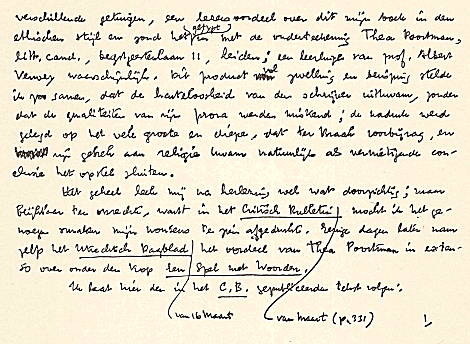 verschillende getuigen, een lezersoordeel over dit mijn boek in den
ethischen stijl en zond het getypt in met de onderteekening Thea Poortman,
litt. cand., Leiden; een leerlinge van prof. Albert
Verwey waarschijnlijk. Dit product vol zwelling en stelde
ik zoo samen, dat de harteloosheid van den schrijver uitkwam, zonder
dat de qualiteiten van zijn proza werden miskend; de nadruk werd
gelegd op het vele groote en diepe, dat ter Braak voorbijzag, en
zijn gebrek aan religie kwam natuurlijk als vernietigende con-
clusie het opstel sluiten.
Het geheel leek mij na herlezing wel wat doorzichtig; maar
blijkbaar ten onrechte, want in het Critisch Bulletin mocht ik het ge-
noegen smaken mijn nonsens te zien afgedrukt. Eenige dagen later nam
zelfs het Utrechtsch Dagblad het oordeel van Thea Poortman in exten-
so over onder den kop Een Spel met Woorden.
Ik laat hier den in het C.B. gepubliceerden tekst volgen:
van 16 Maart
van Maart (p. 331)